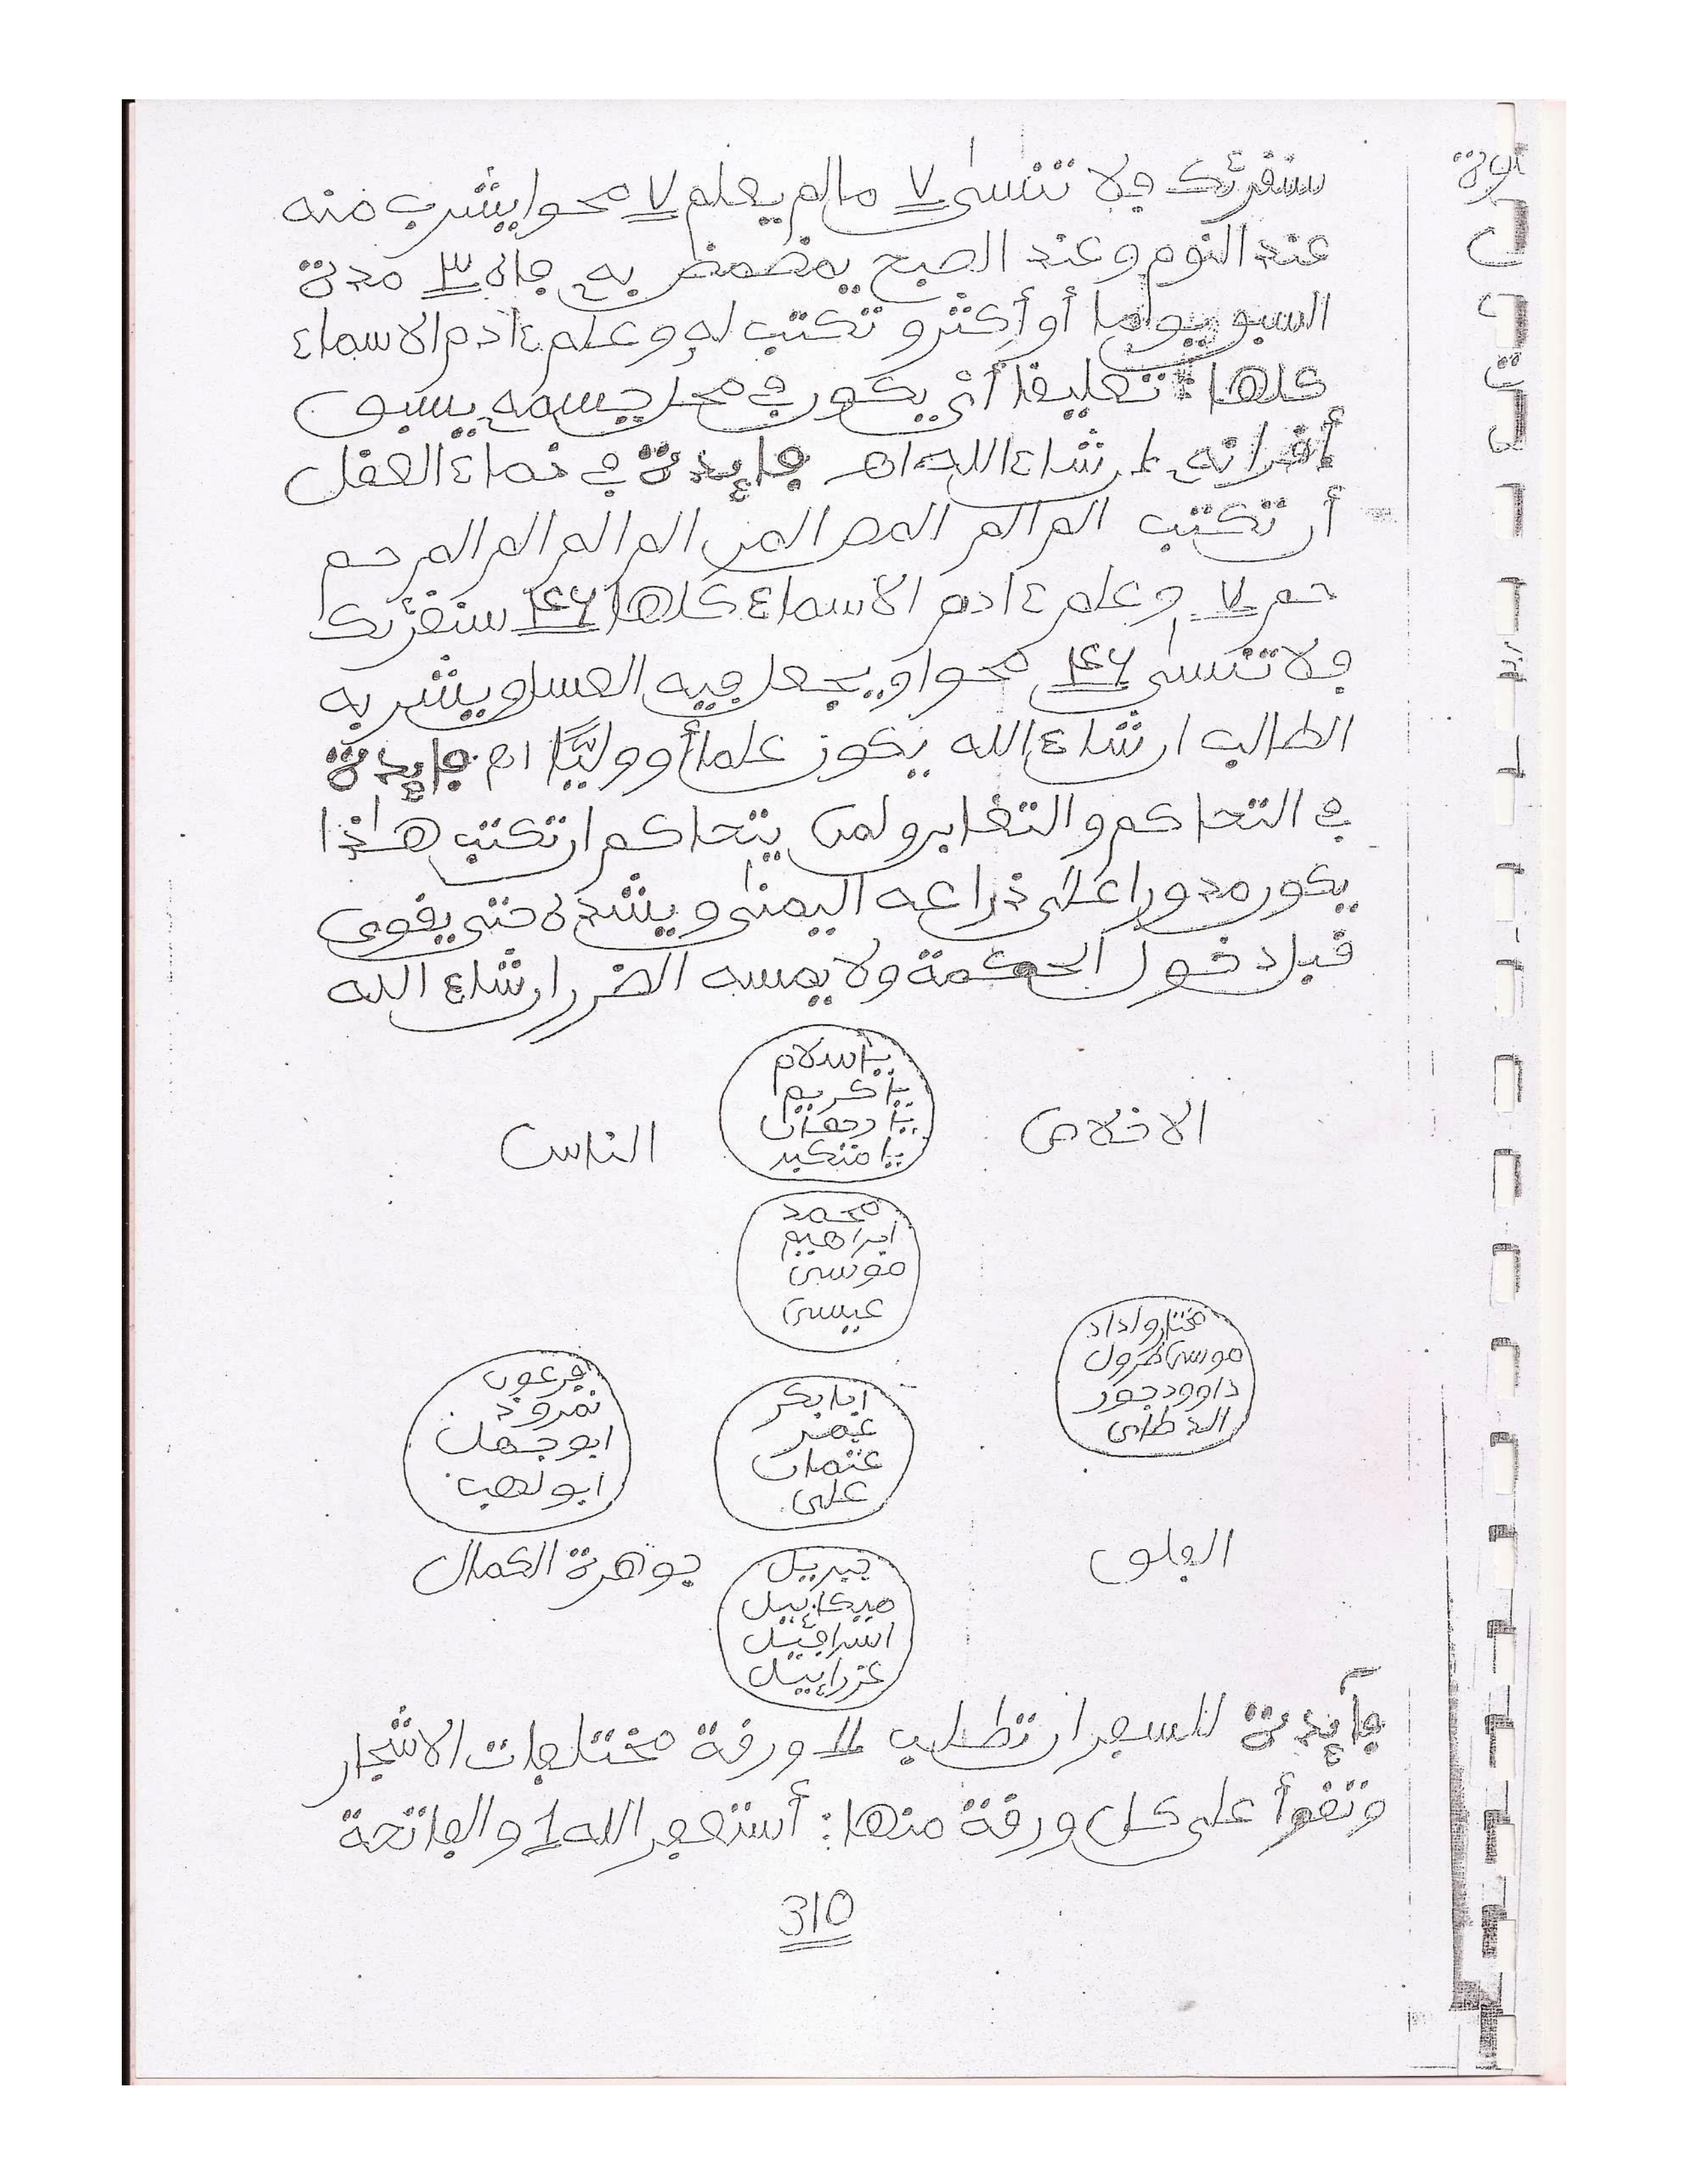 سنقرئك فلا تنسى ٧ ما لم يعلم ٧ محوا يشرب منه
عند النوم وعند الصبح يمضمض به فاه ٣ مدة
أو أكثر و تكتب له وعلم ءادم الاسماء
كلها تعليقا أي يكون في محل جسمه يسبق
أقرانه إن شاء الله اهـ فإيدة في نماء العقل
أن تكتب الم الم المص المر الم الم الم الم حم
حم ٧ وعلم ءادم الاسماء كلها ١٤٦ سنقرئك
فلا تنسى ١٤٦ محوا ويجعل فيه العسل ويشربه
الطالب ان شاء الله يكون علما أو وليًّا اهـ فايدة
في التحاكم والتغابر ولمن يتحاكم ان تكتب هذا
يكون مدورا على ذراعه اليمنى و يشده حتى يقوى
قبل دخول الحكمة ولا يمسه الضرر ان شاء الله
يا سلام
يا كريم
يا رحمان
يا متكبر
الاخلاص
الناس
محمد
ابراهيم
موسى
عيسى
موسى
فرعون
نمرود
ابو جهل
ابو لهب
ابا بكر
عمر
عثمان
على
الفلق
جوهرة الكمال
جبريل
ميكاييل
اسرافيل
عزراييل
فآيدة للسعر ان تطلب ١١ ورقة مختلفات الاشجار
وتقرأ على كل ورقة منها: أستغفر الله 1 والفاتحة
310